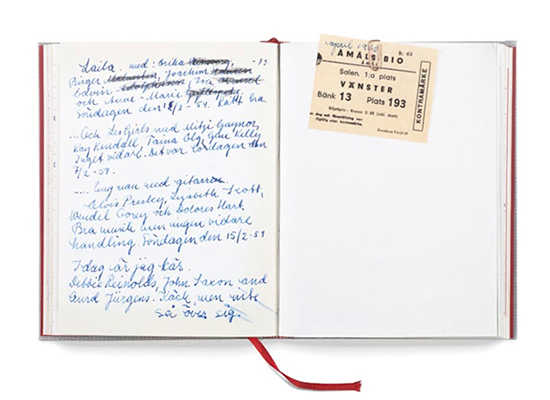 Laila. med: Erika -59
Birger Joachim
Edvin
och Anne-Marie
Söndagen den 18/2 -59. Rätt bra
....Och LesGirls med Mitzi Gaynor,
Kay Kendall, Taina Elg, Gene Kelly
Inget vidare. Det var Lördagen den
7/2 -59.
.... Ung man med gitarren.
Elvis Presley, Lizbeth Scott,
Wendel Corey och Dolores Hart.
Bra musik men ingen vidare
handling. Söndagen den 15/2 -59
I dag är jag kär.
Debbie Reinolds, John Saxon and
Curd Jürgens. Käck, men inte
så över sig.
april 1960
ÅMÅLS BIO
ÅMÅL
Salen. 1:a plats
VÄNSTER
Bänk 13 Plats 193
KONTRAMÄRKE